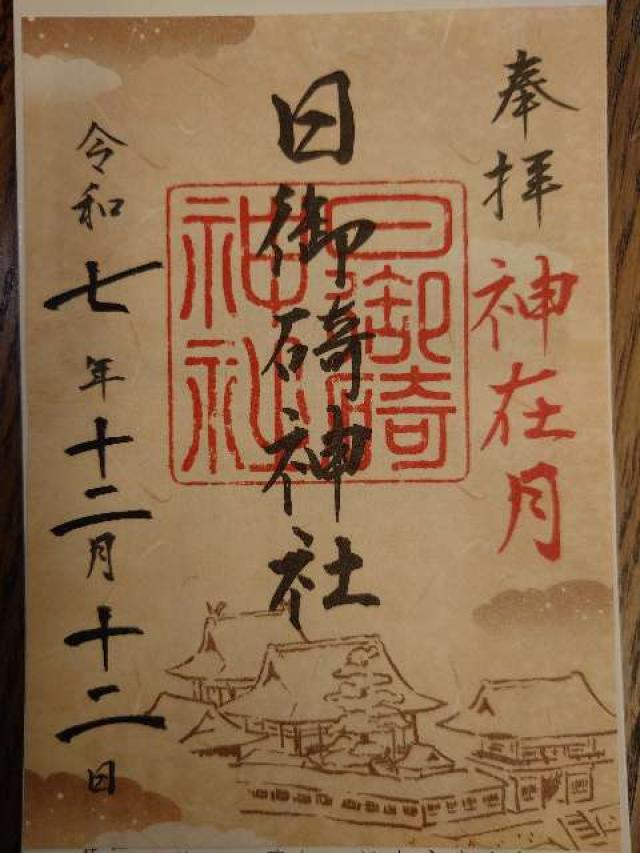 奉拝
神在月
日御碕神社
日御碕神社
令和七年十二月十二日